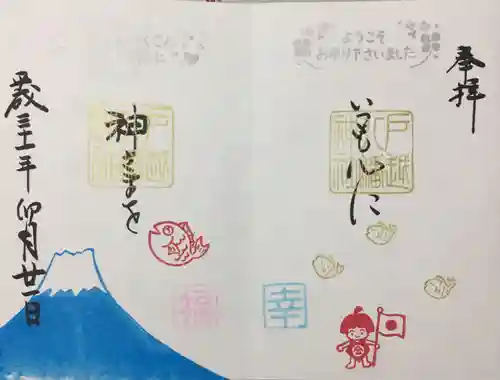 奉拝
ようこそ
お参り下さいました
戸越
八幡
神社
いつも心に
神さまを
戸越
八幡
神社
平成三十一年卯月廿一日
幸
福
金